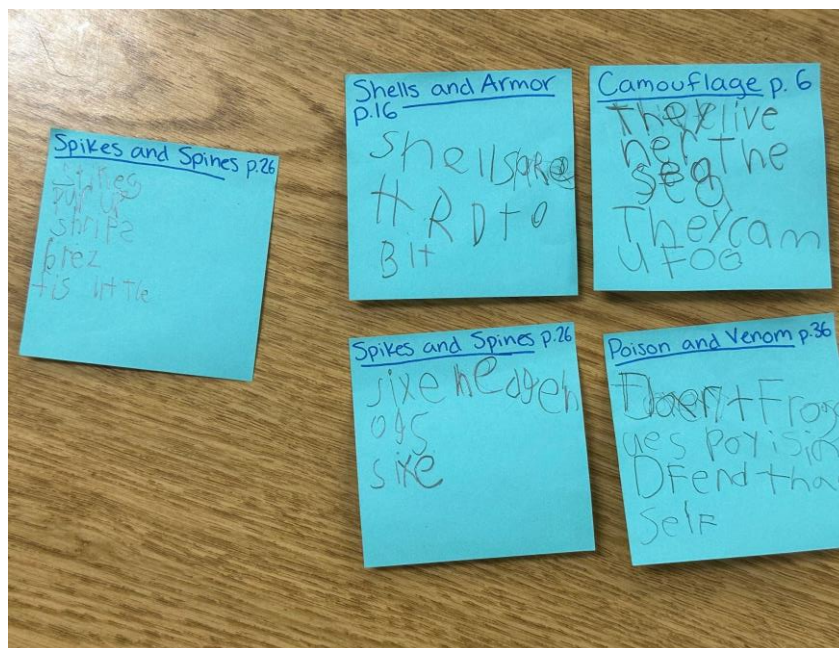 Spikes and Spines p.26
Spikes
puf up
shrips
brez
tis little
Shells and Armor
p.16
Shells are
HRD to
Bit
Camouflage p. 6
They live
ner The
seg
They cam
u Foo
Spikes and Spines p.26
sixe hedgeh
ogs
sixe
Poison and Venom p.36
Daert Frog
ues poyisin
DFend tha
self